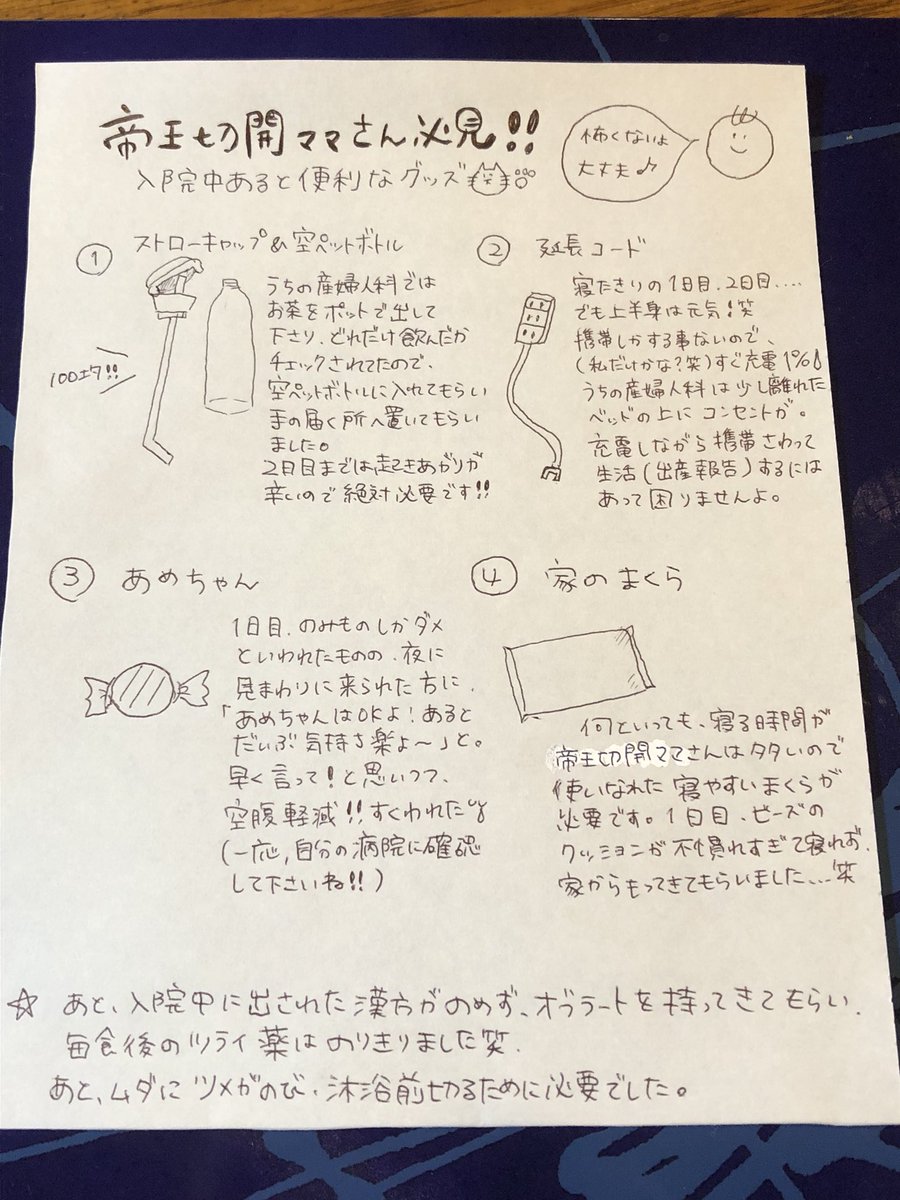 帝王切開ママさん必見!!
入院中あると便利なグッズ
怖くないよ
大丈夫♪
① ストローキャップ&空ペットボトル
100均!!
うちの産婦人科では
お茶をポットで出して
下さり、どれだけ飲んだか
チェックされてたので、
空ペットボトルに入れてもらい
手の届く所へ置いてもらい
ました。
2日目までは起きあがりが
辛いので絶対必要です!!
② 延長コード
寝たきりの1日目、2日目....
でも上半身は元気!笑
携帯しかする事ないので、
(私だけかな?笑)すぐ充電1%!
うちの産婦人科は少し離れた
ベッドの上にコンセントが。
充電しながら携帯さわって
生活(出産報告)するには
あって困りませんよ。
③ あめちゃん
1日目、のみものしかダメ
といわれたものの、夜に
見まわりに来られた方に、
「あめちゃんはOKよ!あると
だいぶ気持ち楽よ〜」と。
早く言って!と思いつつ、
空腹軽減!!すくわれた
(一応、自分の病院に確認
して下さいね!!)
④ 家のまくら
何といっても、寝る時間が
帝王切開ママさんは多いので
使いなれた寝やすいまくらが
必要です。1日目、ビーズの
クッションが不慣れすぎて寝れず、
家からもってきてもらいました...笑
☆ あと、入院中に出された漢方がのめず、オブラートを持ってきてもらい、
毎食後のツライ薬はのりきりました笑.
あと、ムダにツメがのび、沐浴前切るために必要でした。